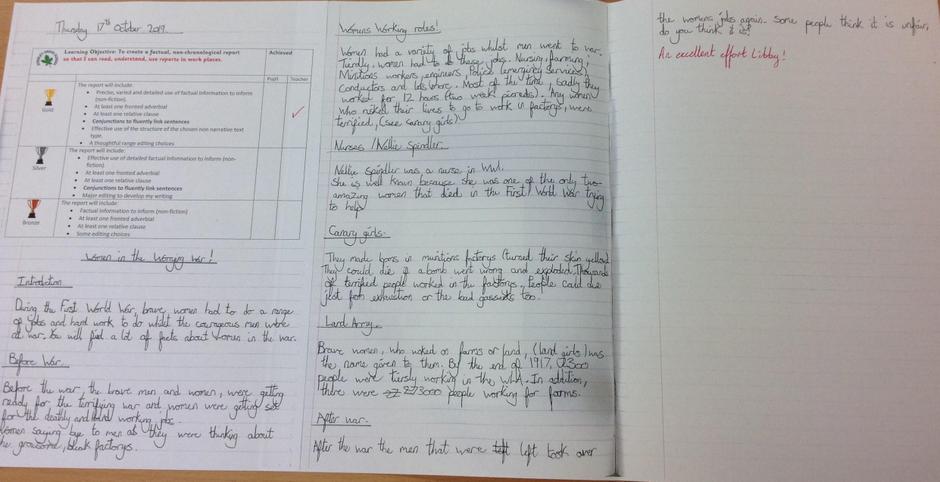 Thursday 17th October 2019
Learning Objective: To create a factual, non-chronological report
so that I can read, understand, use reports in work places.
Achieved
Pupil
Teacher
Gold
The report will include:
Precise, varied and detailed use of factual information to inform
(non-fiction).
At least one fronted adverbial
At least one relative clause
Conjunctions to fluently link sentences
Effective use of the structure of the chosen non narrative text
type.
A thoughtful range editing choices
Silver
The report will include:
Effective use of detailed factual information to inform (non-
fiction).
At least one fronted adverbial
At least one relative clause
Conjunctions to fluently link sentences
Major editing to develop my writing
Bronze
The report will include:
Factual information to inform (non-fiction)
At least one fronted adverbial
At least one relative clause
Some editing choices
Women in the Worrying War!
Introduction
During the First World War, brave women had to do a range
of jobs and hard work to do whilst the courageous men were
at war. You will find a lot of facts about women in the war.
Before War.
Before the war, the brave men and women, were getting
ready for the terrifying war and women were getting set
for the deathly and working jobs.
Women saying bye to men as they were thinking about
he gruesome, bleak factorys.
Womans Working roles!
Women had a variety of jobs whilst men went to war.
women had to these jobs. Nursing, farming,
Munitions workers, engineers, Police (emergency services),
Conductors and lots more. Most of the time, sadly they
worked for 12 hours (two week periods). Any women
who risked their lives to go to work in factorys, were
terrified, (see canary girls)
Nurses /Nellie Spindler.
Nellie Spindler was a nurse in WW1.
She is well known because she was one of the only two
amazing women that died in the First World War trying
to help
Canary girls.
They made boms in munitions factorys (turned their skin yellow)
They could die if a bomb went wrong and exploded. Thousands
of terrified people worked in the factorys. People could die
just from exhaustion or the bad too.
Land Army.
Brave women, who woked on farms or land, (land girls) was
the name given to them. By the end of 1917,
people were working in the WLA. In addition,
there were 273000 people working for farms.
After war.
After the war the men that were left took over
the womens jobs again. Some people think it is unfair,
do you think it is?
An excellent effort Libby!